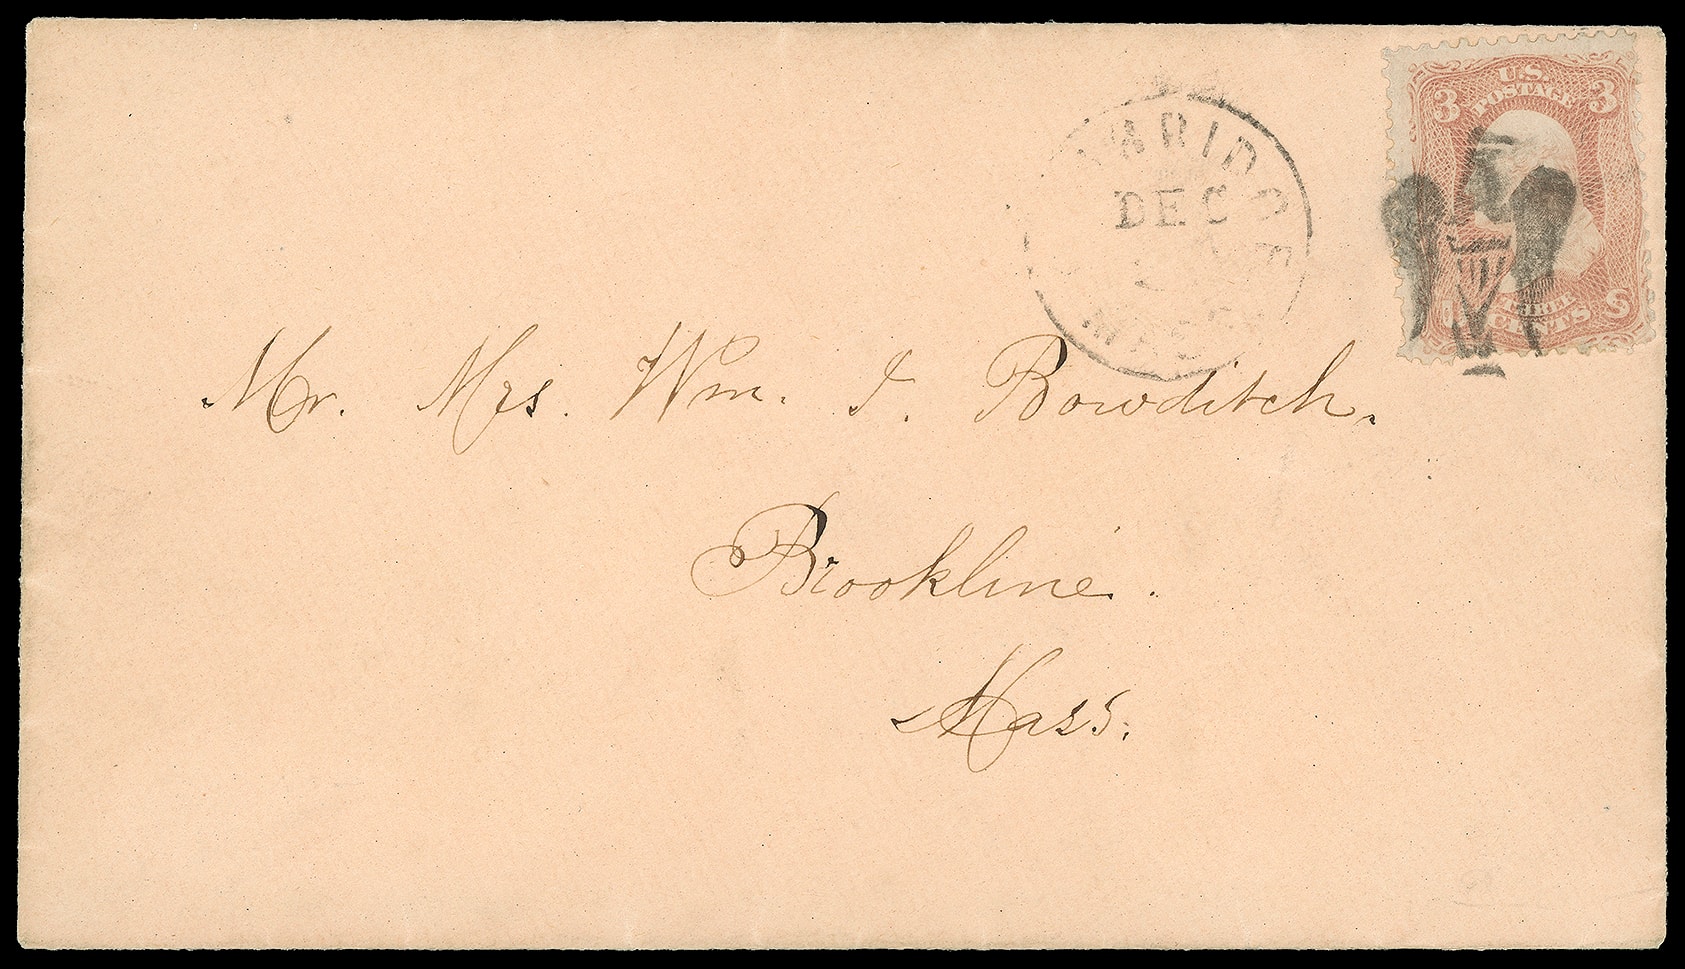 U.S.
POSTAGE
3 3
THREE
CENTS
DEC
MASS
Mr. Mrs. Wm. I. Bowditch.
Brookline.
Mass.